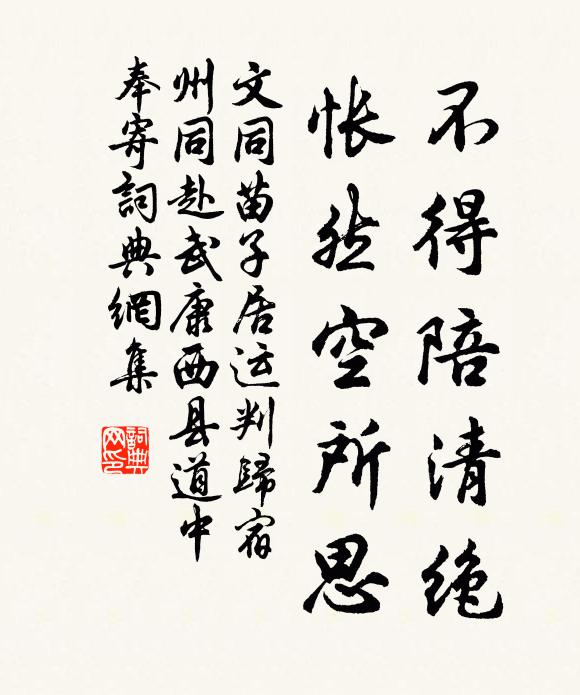 不得陪清绝
怅然空所思
文同苗子居运判歸宿
州同赴武康西县道中
奉寄詞典網集
詞典
网印